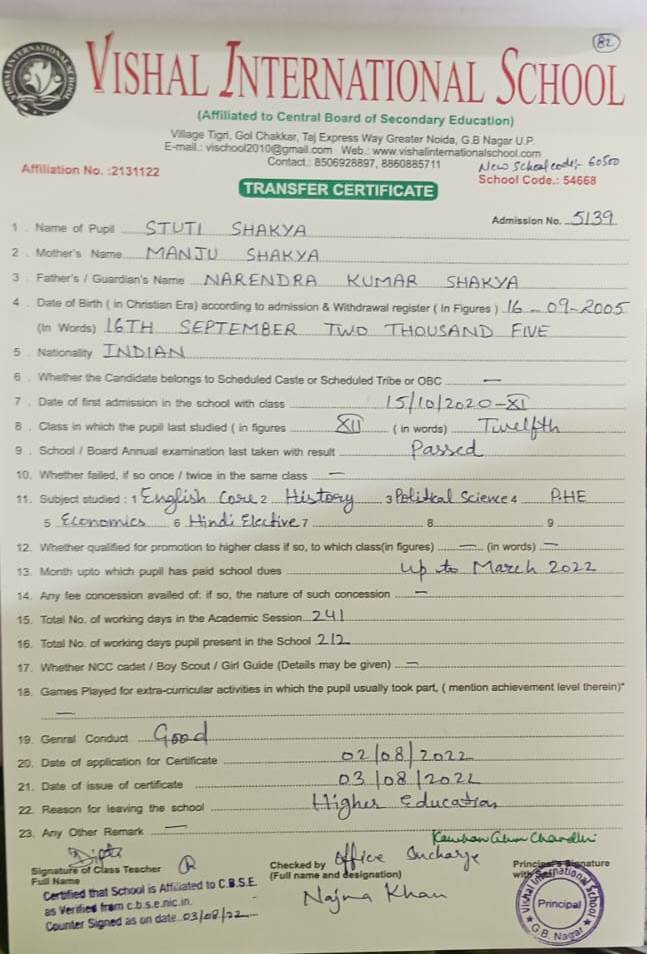 82
VISHAL INTERNATIONAL SCHOOL
(Affiliated to Central Board of Secondary Education)
Village Tigri, Gol Chakkar, Taj Express Way Greater Noida, G.B Nagar U.P.
E-mail.: vischool2010@gmail.com Web.: www.vishalinternationalschool.com
Contact.: 8506928897, 8860885711
New School code:- 60500
Affiliation No. :2131122
School Code.: 54668
TRANSFER CERTIFICATE
Admission No. 5139
1 . Name of Pupil STUTI SHAKYA
2 . Mother's Name MANJU SHAKYA
3 . Father's / Guardian's Name NARENDRA KUMAR SHAKYA
4 . Date of Birth ( in Christian Era) according to admission & Withdrawal register ( In Figures ) 16-09-2005
(In Words) 16TH SEPTEMBER TWO THOUSAND FIVE
5 . Nationality INDIAN
6 . Whether the Candidate belongs to Scheduled Caste or Scheduled Tribe or OBC —
7 . Date of first admission in the school with class 15/10/2020-XI
8 . Class in which the pupil last studied ( in figures XII ( in words) Twelfth
9 . School / Board Annual examination last taken with result Passed
10. Whether failed, if so once / twice in the same class —
11. Subject studied : 1 English Core 2 History 3 Political Science 4 P.HE
5 Economics 6 Hindi Elective 7 8 9
12. Whether qualified for promotion to higher class if so, to which class(in figures) — (in words) —
13. Month upto which pupil has paid school dues up to March 2022
14. Any fee concession availed of: if so, the nature of such concession —
15. Total No. of working days in the Academic Session 241
16. Total No. of working days pupil present in the School 212
17. Whether NCC cadet / Boy Scout / Girl Guide (Details may be given) —
18. Games Played for extra-curricular activities in which the pupil usually took part, ( mention achievement level therein)*
—
19. Genral Conduct Good
20. Date of application for Certificate 02/08/2022
21. Date of issue of certificate 03/08/2022
22. Reason for leaving the school Higher Education
23. Any Other Remark —
Signature of Class Teacher
Full Name
Checked by Office Incharge
(Full name and designation)
Najma Khan
Principal's Signature
with Seal
Certified that School is Affiliated to C.B.S.E.
as Verified from c.b.s.e.nic.in.
Counter Signed as on date 03/08/22
Vishal International School
Principal
G.B. Nagar